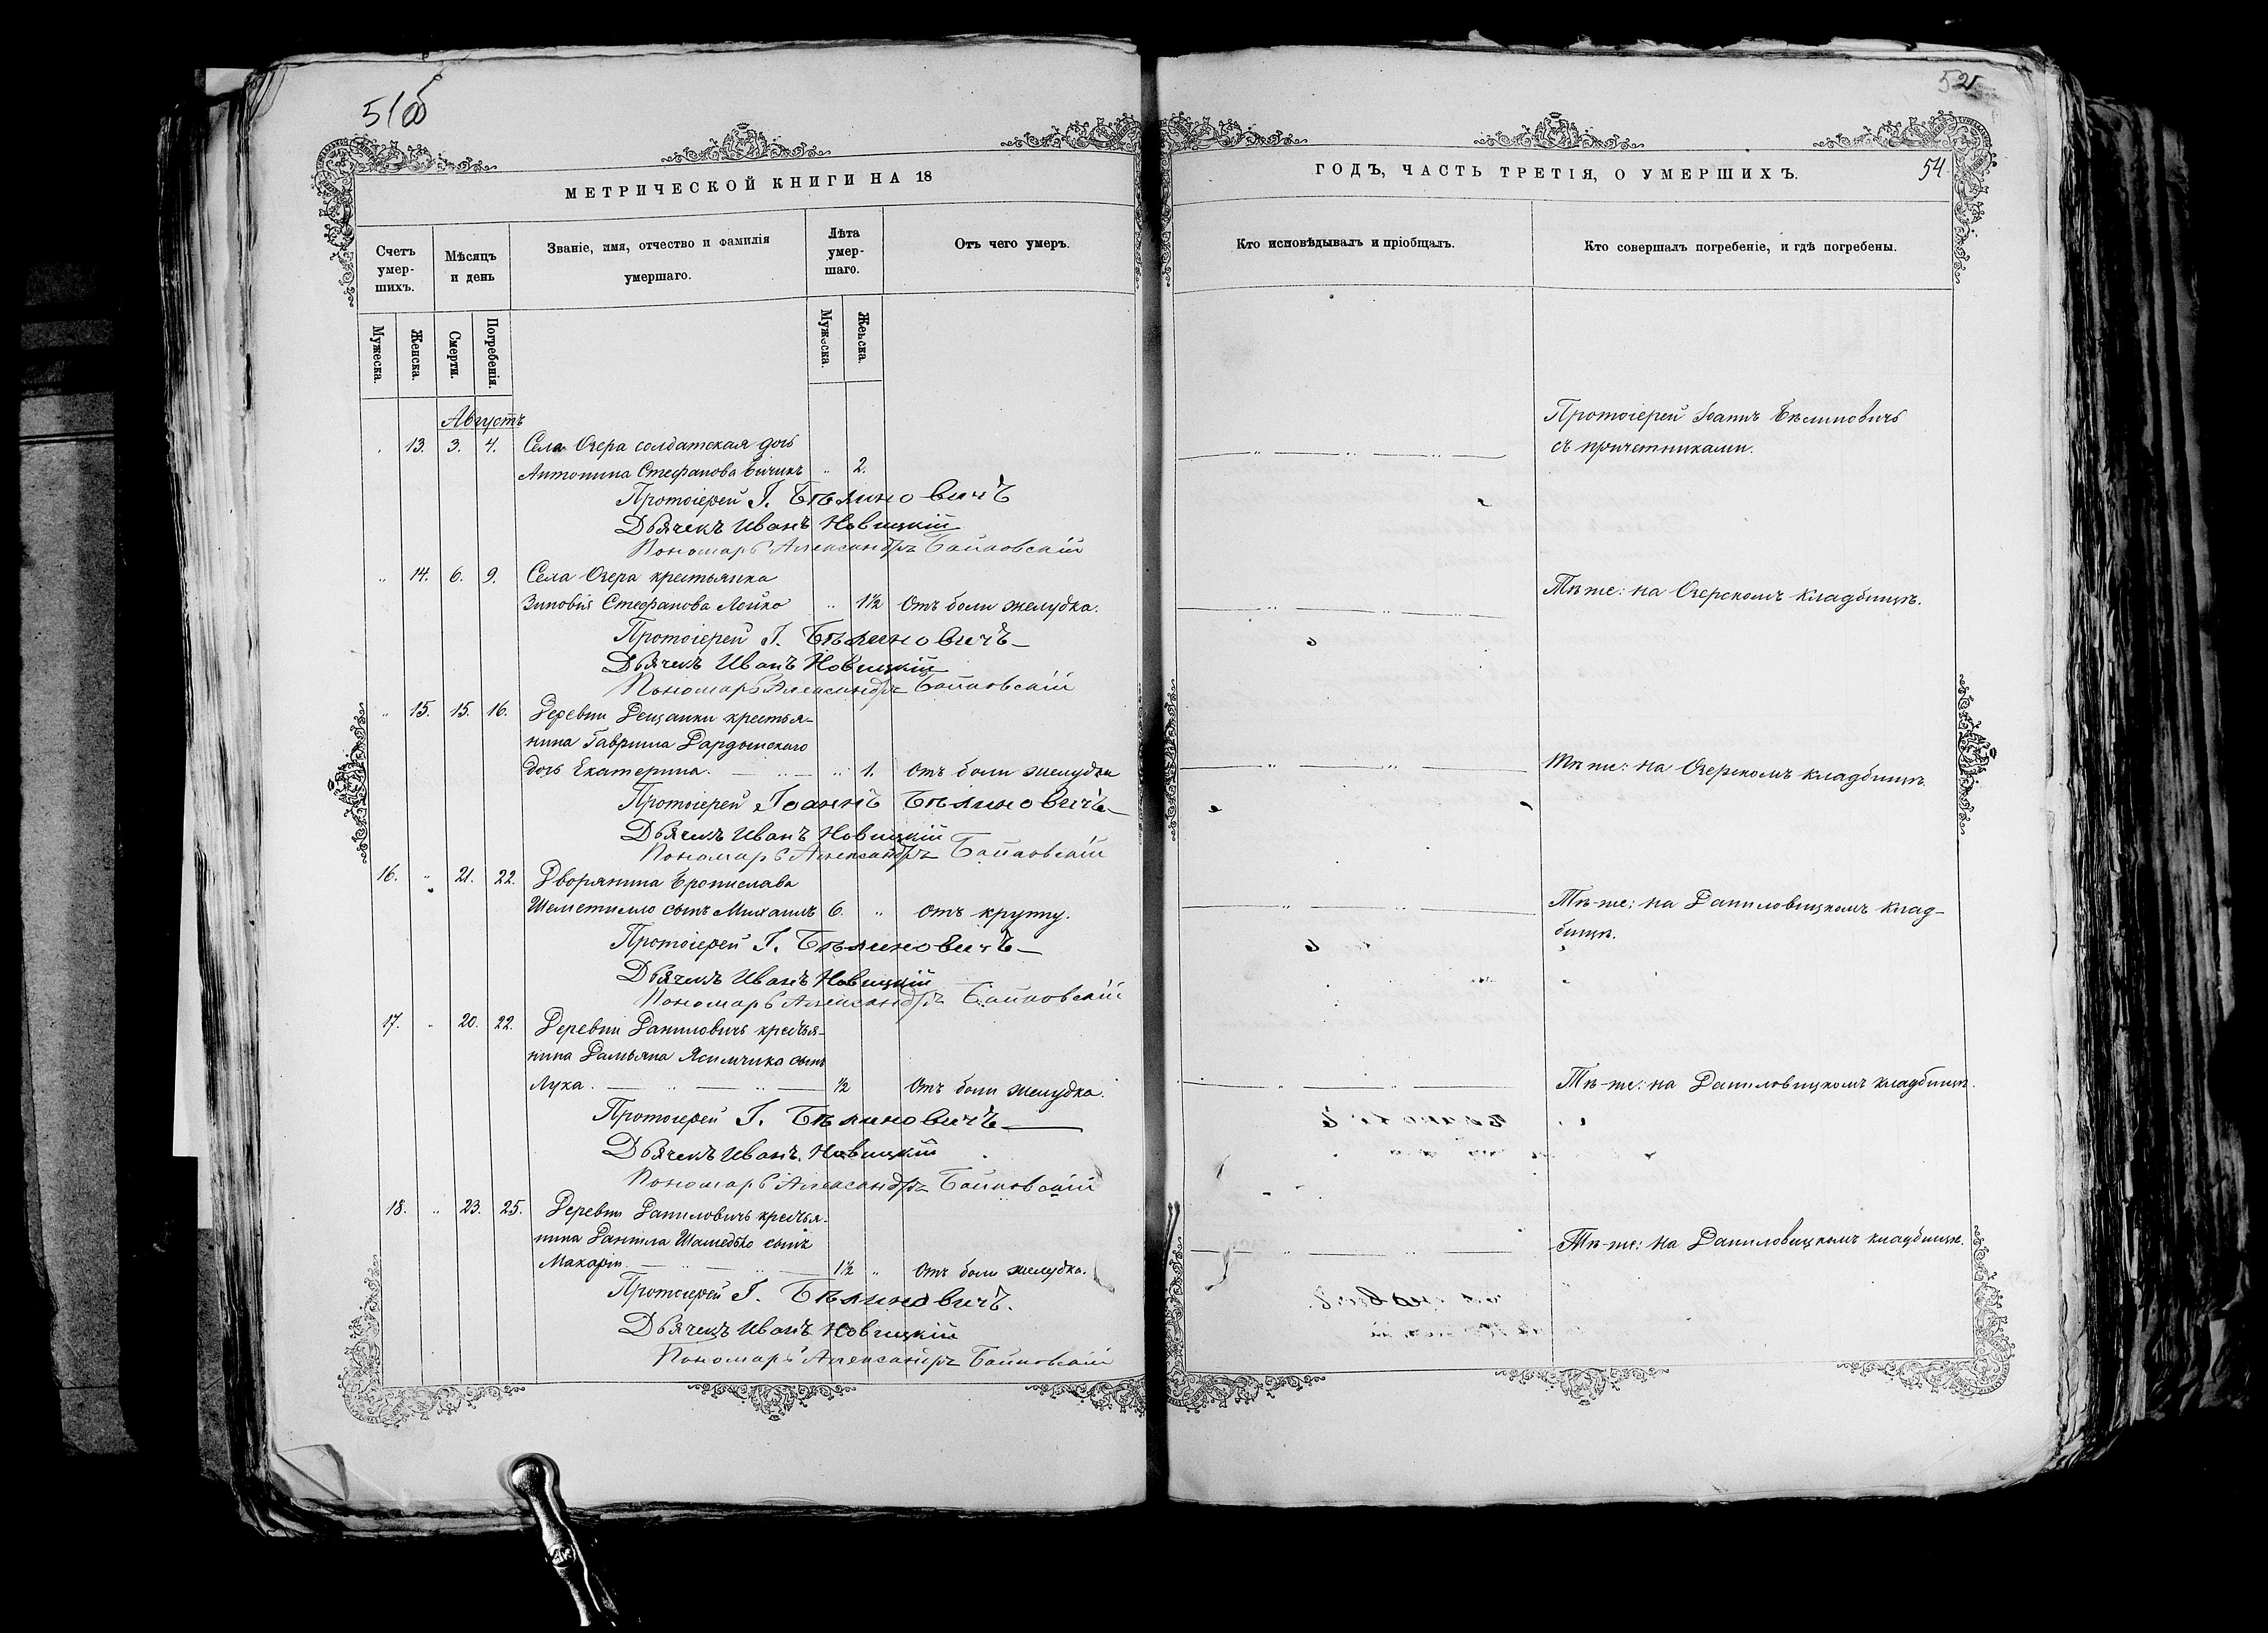 51об
МЕТРИЧЕСКОЙ КНИГИ НА 18
Счетъ умер- шихъ.
Мѣсяцъ и день
Званіе, имя, отчество и фамилія умершаго.
Лѣта умер- шаго.
Отъ чего умеръ.
Мужеска.
Женска.
Смерти.
Погребенія.
Мужеска.
Женска.
Августъ
13. 3. 4. Села Озера солдатская дочь
Антонина Стефанова " 2.
Протоіерей І. Бѣлиновичъ
Дьячекъ Иванъ Новицкій
Пономарь Александръ Байковскій
" 14. 6. 9. Села Озера крестьянка
Зиновія Стефанова Лойко " 1½ Отъ боли желудка.
Протоіерей І. Бѣлиновичъ
Дьячекъ Иванъ Новицкій
Пономарь Александръ Байковскій
" 15. 15. 16. Деревни крестья-
нина Гавриила
дочь Екатерина. " 1. Отъ боли желудка
Протоіерей Іоаннъ Бѣлиновичъ
Дьячекъ Иванъ Новицкій
Пономарь Александръ Байковскій
16. " 21. 22. Дворянина Бронислава
Шеметилло сынъ Михаилъ 6. " Отъ крупу.
Протоіерей І. Бѣлиновичъ
Дьячекъ Иванъ Новицкій
Пономарь Александръ Байковскій
17. " 20. 22. Деревни Даниловичъ крестья-
нина Дамьяна сынъ
Лука. ½ Отъ боли желудка.
Протоіерей І. Бѣлиновичъ
Дьячекъ Иванъ Новицкій
Пономарь Александръ Байковскій
18. " 23. 25. Деревни Даниловичъ крестья-
нина Данила сынъ
Макарій. 1½ " Отъ боли желудка.
Протоіерей І. Бѣлиновичъ.
Дьячекъ Иванъ Новицкій
Пономарь Александръ Байковскій
52
ГОДЪ, ЧАСТЬ ТРЕТІЯ, О УМЕРШИХЪ.
54
Кто исповѣдывалъ и пріобщалъ.
Кто совершалъ погребеніе, и гдѣ погребены.
Протоіерей Іоаннъ Бѣлиновичъ
съ причетниками.
Тѣ же: на Озерскомъ кладбищѣ.
Тѣ же: на Озерскомъ кладбищѣ.
Тѣ-же: на Даниловицкомъ клад-
бищѣ.
Тѣ-же: на Даниловицкомъ кладбищѣ.
Тѣ-же: на Даниловицкомъ кладбищѣ.